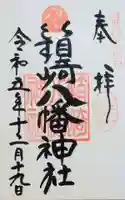 奉拝
鎮崎八幡神社
令和五年十一月十九日